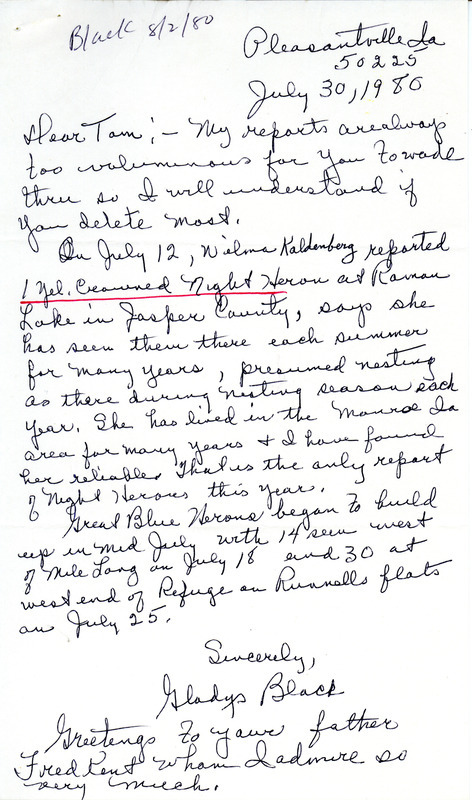 Black 8/2/80
Pleasantville Ia
50225
July 30, 1980
Dear Tom; - My reports are always
too voluminous for you to wade
thru so I will understand if
you delete most.
On July 12, Wilma Kaldenberg reported
1 Yel. Crowned Night Heron at Roman
Lake in Jasper County, says she
has seen them there each summer
for many years, presumed nesting
as there during nesting season each
year. She has lived in the Monroe Ia
area for many years & I have found
her reliable. That is the only report
of Night Herons this year.
Great Blue Herons began to build
up in mid July with 14 seen west
of Mile Long on July 18 and 30 at
west end of Refuge on Runnells flats
on July 25.
Sincerely,
Gladys Black
Greetings to your father
Fred Kent whom I admire so
very much.